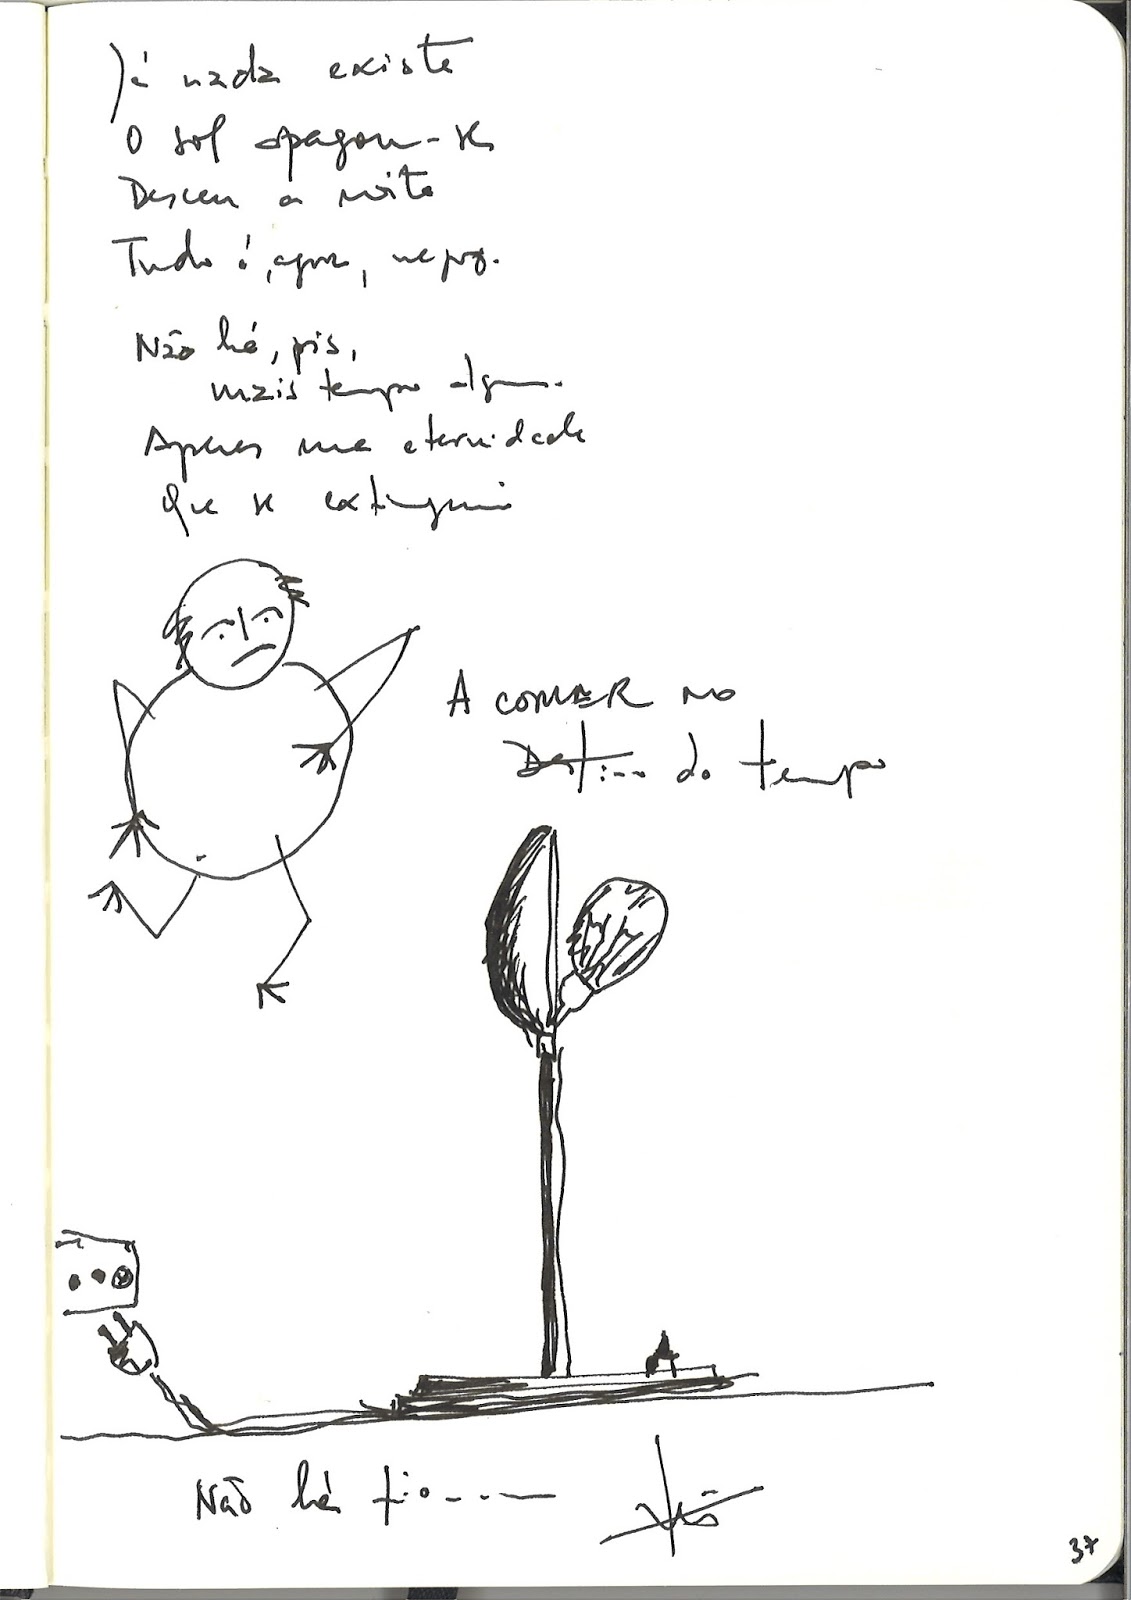 Já nada existe
O sol apagou-se
Desceu a noite
Tudo é, agora, negro.
Não há, pois,
mais tempo algum.
Apenas uma eternidade
que se extinguiu
A COMER NO
Destino do tempo
Não há fio
37